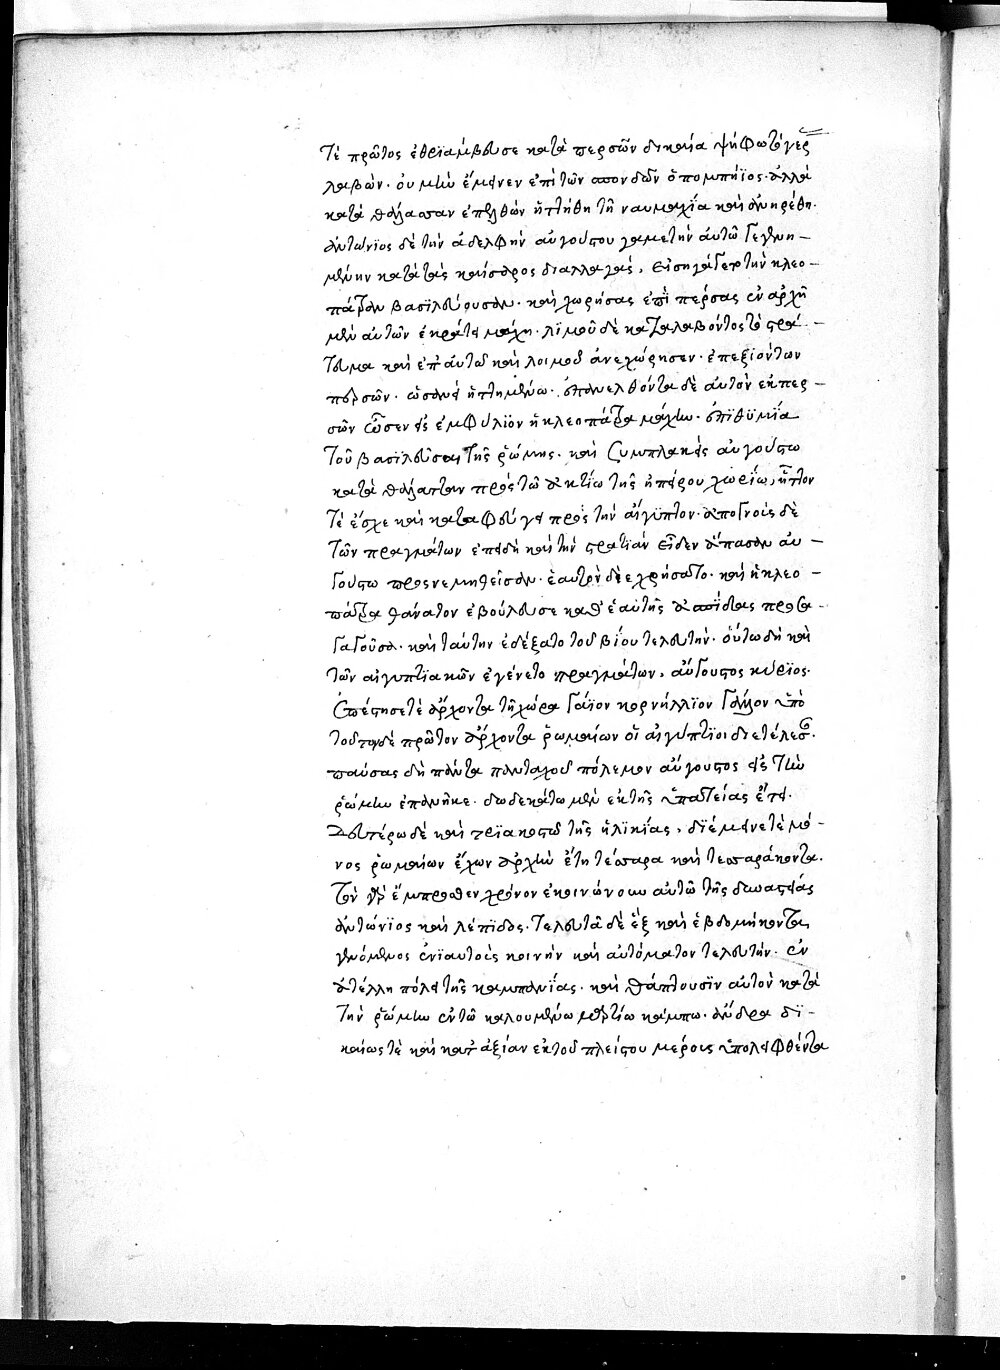 τὲ πρῶτος ἐθριάμβευσε κατὰ περσῶν δικαία ψήφω τὸ γέρας
λαβών· οὐ μὴν ἔμεινεν ἐπὶ τῶν σπονδῶν ὁ πομπήϊος· ἀλλὰ
κατὰ θάλασσαν ἐπελθὼν ἡττήθη τῆ ναυμαχία καὶ ἀνηρέθη·
ἀντώνϊος δὲ τὴν ἀδελφὴν αὐγούστου γαμετὴν ἀυτῶ γεγενη–
μένην κατὰ τὰς καίσαρος διαλλαγὰς, εἰσηγάγετο τὴν κλεο–
πάτραν βασϊλεύουσαν· καὶ χωρήσας ἐπὶ πέρσας ἐν ἀρχῆ
μὲν αὐτῶν ἐκράτει μάχη· λϊμοῦ δὲ καταλαβόντος τὸ στρά–
τευμα καὶ ἐπ' αὐτῶ καὶ λοιμοῦ ἀνεχώρησεν· ἐπεξιόντων
περσῶν· ὡσανεὶ ἡττημένω· ἐπανελθόντα δὲ αὐτὸν ἐκ περ–
σῶν ὦσεν εἰς ἐμφύλϊον ἡ κλεοπάτρα μάχην· ἐπϊθϋμία
τοῦ βασϊλεῦσαι τῆς ῥώμης· καὶ συμπλακεὶς αὐγούστω
κατὰ θάλατταν πρὸς τῶ ἀκτίω τῆς ἠπείρου χωρίω, ἧττόν
τὲ ἔσχε καὶ καταφεύγει πρὸς τὴν αἴγϋπτον· ἀπογνοὺς δὲ
τῶν πραγμάτων ἐπειδὴ καὶ τὴν στρατϊὰν εἶδεν ἅπασαν αὐ–
γούστω προσνεμηθεῖσαν· ἑαυτὸν διεχρήσατο· καὶ ἡ κλεο–
πάτρα θάνατον ἐβούλευσε καθ' ἑαυτῆς ἀσπίδας προσα–
γαγοῦσα· καὶ ταύτην ἐδέξατο τοῦ βίου τελευτὴν· οὕτω δὴ καὶ
τῶν αἰγυπτϊακῶν ἐγένετο πραγμάτων, αὔγουστος κύρϊος·
ἐπέστησέ τὲ ἄρχοντα τῆ χώρα γάϊον κορνήλλϊον γάλλον ὑπὸ
τοῦτον δὲ πρῶτον ἄρχοντα ῥωμαίων οἱ αἰγύπτϊοι διετέλεσαν·
παύσας δὴ πάντα πανταχοῦ πόλεμον αὔγουστος εἰς τὴν
ῥώμην ἐπανῆκε· δωδεκάτω μὲν ἐκ τῆς ὑπατείας ἔτει·
δευτέρω δὲ καὶ τρϊακοστῶ τῆς ἡλϊκίας, δϊέμεινέ τὲ μό–
νος ῥωμαίων ἔχων ἀρχὴν ἔτη τέσσαρα καὶ τεσσαράκοντα·
τὸν γὰρ ἔμπροσθεν χρόνον ἐκοινώνουν αὐτῶ τῆς δυναστείας
ἀντώνϊος καὶ λέπϊδος· τελευτᾶ δὲ ἓξ καὶ ἑβδομήκοντα
γενόμενος ἐνϊαυτοὺς κοινὴν καὶ αὐτόματον τελευτήν· ἐν
ἀτέλλη πόλει τῆς καμπανίας· καὶ θάπτουσϊν αὐτὸν κατὰ
τὴν ῥώμην ἐν τῶ καλουμένω μαρτίω κάμπω· ἄνδρα δϊ–
καίως τὲ καὶ κατ' ἀξίαν ἐκ τοῦ πλείστου μέρους ὑπολειφθέντα